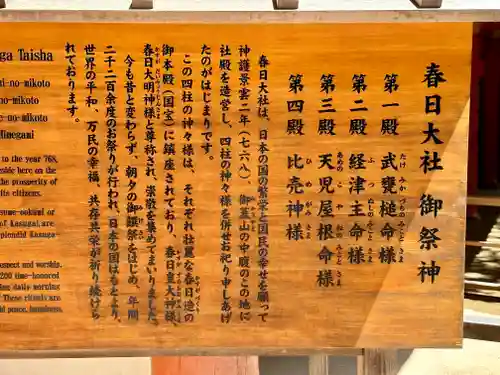 春日大社御祭神
第一殿 武甕槌命様
たけみかづちのみことさま
第二殿 経津主命様
ふつぬしのみことさま
第三殿 天児屋根命様
あめのこやねのみことさま
第四殿 比売神様
ひめがみさま
春日大社は、日本の国の繁栄と国民の幸せを願って
神護景雲二年（七六八）、御蓋山の中腹のこの地に
社殿を造営し、四柱の神々様を併せお祀り申しあげ
たのがはじまりです。
この四柱の神々様は、それぞれ壮麗な春日造の
御本殿（国宝）に鎮座されており、春日皇大神様、
春日大明神様と尊称され、崇敬を集めてまいりました。
今も昔と変わらず、朝夕の御饌祭をはじめ、年間
二千二百余度のお祭りが行われ、日本の国はもとより、
世界の平和、万民の幸福、共存共栄が祈り続けら
れております。
ga Taisha
ni-no-mikoto
no-mikoto
no-mikoto
Himegami
to the year 768,
deside here on the
the prosperity of
its citizens.
of Kasugai, are
plendid Kasuga-
spect and worship.
200 time-honored
dian daily morning
These rituals are
ld peace, happiness,